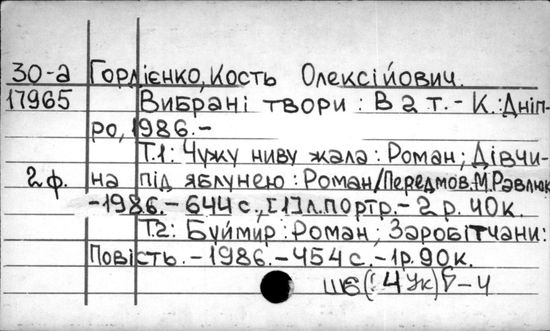 30-а Гордієнко, Кость Олексійович.
17965 Вибрані твори: В 2 т. - К.: Дніп-
ро, 1986.-
Т.1: Чужу ниву жала: Роман; Дівчи-
2 ф. на під яблунею: Роман/Передмов. М. Равлюк
-1986.-644 с., [1] л. портр.-2 р. 40 к.
Т2: Буймир: Роман; Заробітчани:
Повість.-1986.-454 с.-1 р. 90 к.
Ш6(4Ук)